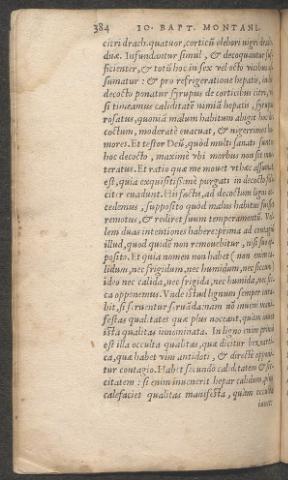 384 IO. BAPT. MONTANI.
citri drach. quatuor, corticũ elebori nigri drach.
duæ. Infundantur simul, & decoquantur suf-
ficienter, & totũ hoc in sex vel octo vicibus as-
sumatur: & pro refrigeratione hepatis, in hoc
decocto ponatur syrupus de corticibus citri, vt
si timeamus caliditatẽ nimiã hepatis, syrupus
rosatus, quoniã malum habitum abigit hoc de-
coctum, moderatè euacuat, & nigerrimos hu-
mores. Et testor Deũ, quòd multi sanati sunt
hoc decocto, maximè vbi morbus non sit
teratus. Et ratio quæ me mouet vt hæc assumãt
est, quia exquisitissimè purgati in decocto
citer euadunt. His factis, ad decoctum ligni
cedemus, supposito quòd malus habitus sit
remotus, & redierit suum temperamentũ. Vel-
lem duas intentiones habere: prima ad contagiũ
illud, quod quidẽ non remouebitur, nisi suo op-
posito. Et quia nomen non habet (non enim ca-
lidum, nec frigidum, nec humidum, nec siccum)
ideo nec calida, nec frigida, nec humida, nec sic-
ca opponemus. Vnde istud lignum semper
bit, si seruentur seruãda: nam nõ inueni
festas qualitates quæ plus noceant, quàm
ista qualitas innominata. In ligno enim primò
est illa occulta qualitas, quæ dicitur
ca, quæ habet vim antidoti, & directè oppon-
tur contagio. Habet secundò caliditatem & sic-
citatem: si enim inuenerit hepar calidum, plus
calefaciet qualitas manifesta, quàm occulta
iuuet: